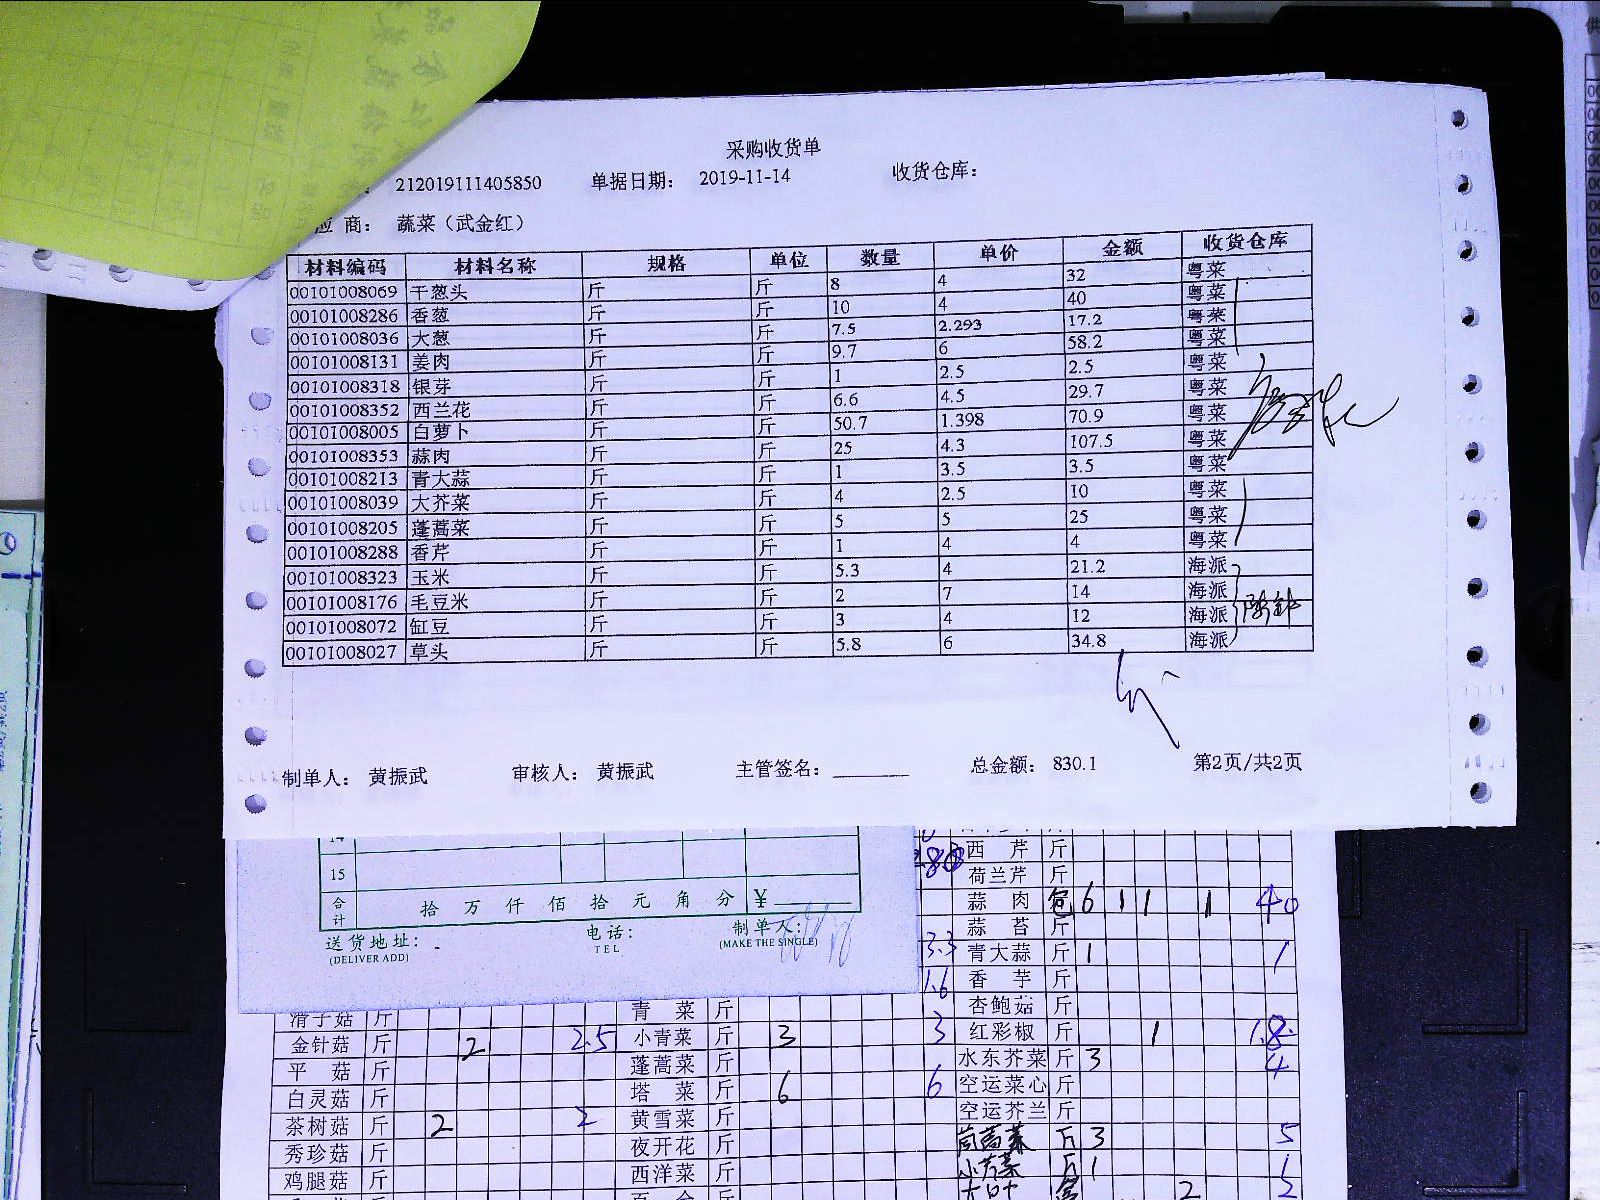 采购收货单
212019111405850 单据日期: 2019-11-14 收货仓库:
应 商: 蔬菜（武金红）
材料编码 材料名称 规格 单位 数量 单价 金额 收货仓库
00101008069 干葱头 斤 斤 8 4 32 粤菜
00101008286 香葱 斤 斤 10 4 40 粤菜
00101008036 大葱 斤 斤 7.5 2.293 17.2 粤菜
00101008131 姜肉 斤 斤 9.7 6 58.2 粤菜
00101008318 银芽 斤 斤 1 2.5 2.5 粤菜
00101008352 西兰花 斤 斤 6.6 4.5 29.7 粤菜
00101008005 白萝卜 斤 斤 50.7 1.398 70.9 粤菜
00101008353 蒜肉 斤 斤 25 4.3 107.5 粤菜
00101008213 青大蒜 斤 斤 1 3.5 3.5 粤菜
00101008039 大芥菜 斤 斤 4 2.5 10 粤菜
00101008205 蓬蒿菜 斤 斤 5 5 25 粤菜
00101008288 香芹 斤 斤 1 4 4 粤菜
00101008323 玉米 斤 斤 5.3 4 21.2 海派
00101008176 毛豆米 斤 斤 2 7 14 海派
00101008072 缸豆 斤 斤 3 4 12 海派
00101008027 草头 斤 斤 5.8 6 34.8 海派
制单人: 黄振武 审核人: 黄振武 主管签名: 总金额: 830.1 第2页/共2页
14
15
合计 拾 万 仟 佰 拾 元 角 分 ¥
送货地址: 电话: 制单人:
(DELIVER ADD) TEL (MAKE THE SINGLE)
西 芹 斤
荷兰芹 斤
蒜 肉 包 6 1 1 1 40
蒜 苔 斤
3.3 青大蒜 斤 1 1
1.6 香 芋 斤
杏鲍菇 斤
滑子菇 斤 青 菜 斤
金针菇 斤 2 2.5 小青菜 斤 3 3 红彩椒 斤 1 1.8
平 菇 斤 蓬蒿菜 斤 水东芥菜 斤 3 4
白灵菇 斤 塔 菜 斤 6 6 空运菜心 斤
茶树菇 斤 2 2 黄雪菜 斤 空运芥兰 斤
秀珍菇 斤 夜开花 斤 茼蒿菜 斤 3 5
鸡腿菇 斤 西洋菜 斤 小芹菜 斤 1 1
百 合 斤 2 2